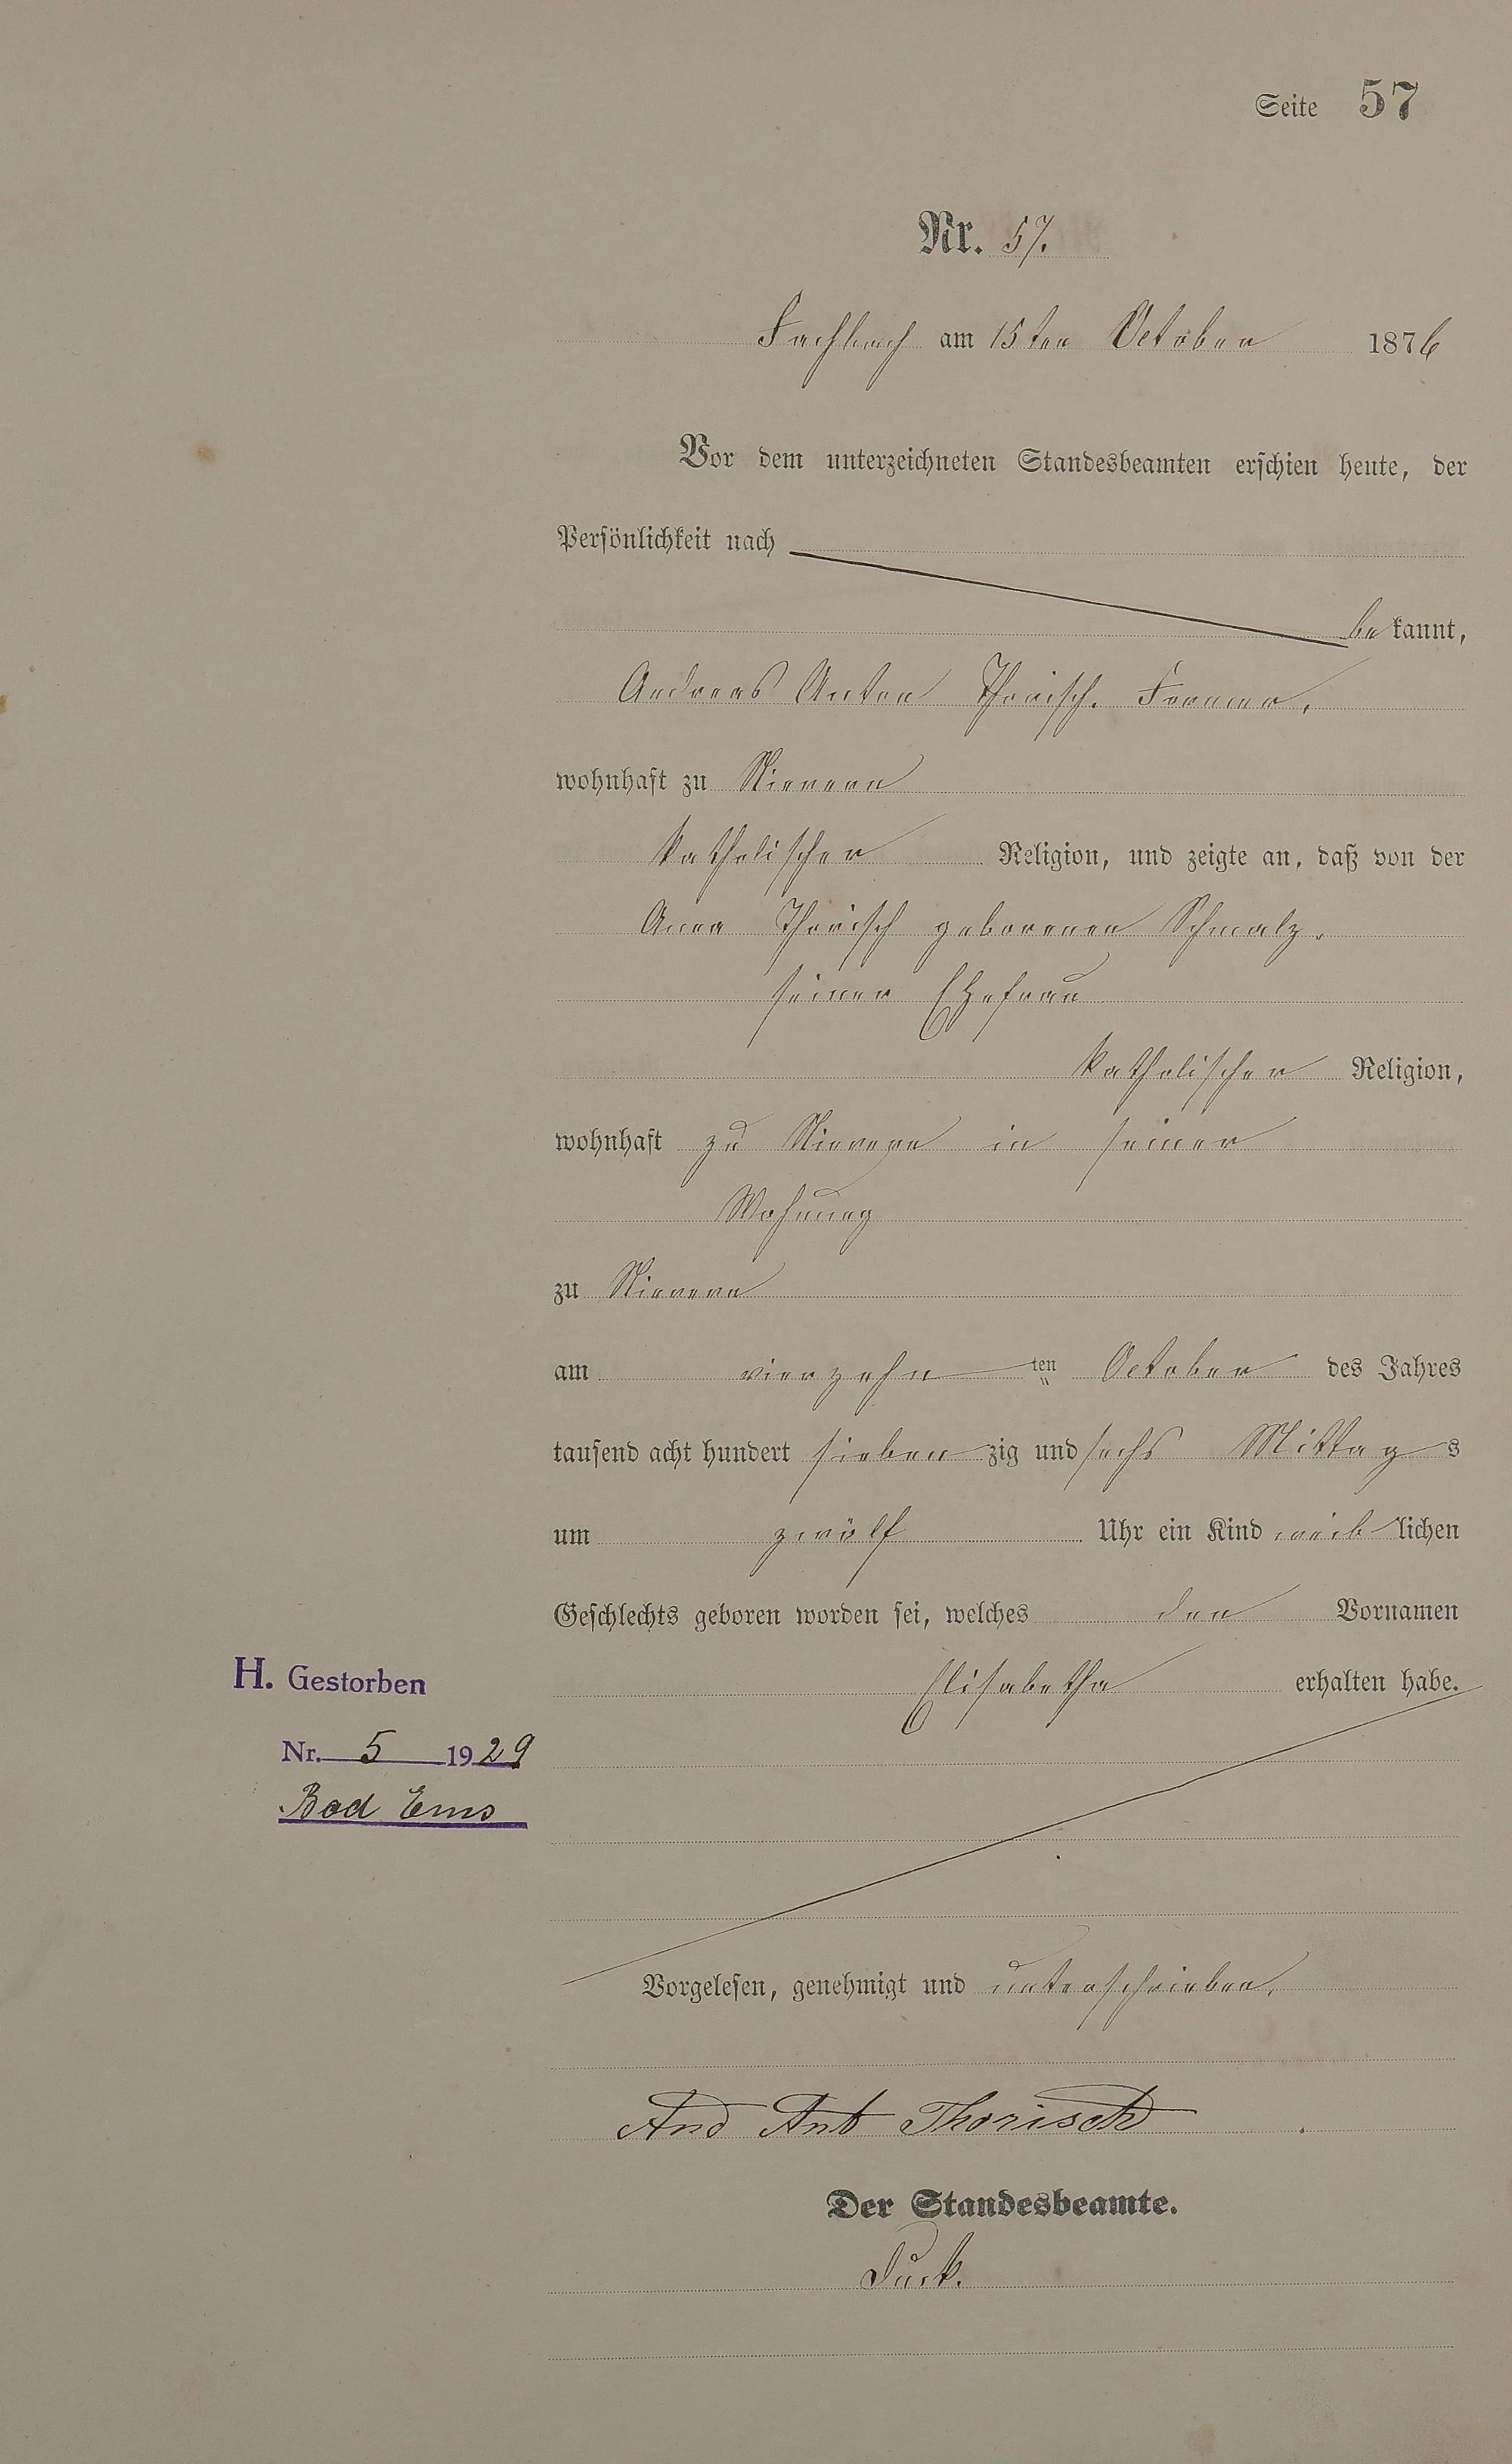 Seite 57
Nr. 57.
Fachbach am 15ten October 1876
Vor dem unterzeichneten Standesbeamten erschien heute, der
Persönlichkeit nach
bekannt,
Andreas Anton Thorisch. Former,
wohnhaft zu Nievern
katholischer Religion, und zeigte an, daß von der
Anna Thorisch geborenen Schmalz,
seiner Ehefrau
katholischer Religion,
wohnhaft zu Nievern in seiner
Wohnung
zu Nievern
am vierzehn ten October des Jahres
tausend acht hundert siebenzig und sechs Mittags
um zwölf Uhr ein Kind weiblichen
Geschlechts geboren worden sei, welches den Vornamen
Elisabetha erhalten habe.
H. Gestorben
Nr. 5 1929
Bad Ems
Vorgelesen, genehmigt und unterschrieben,
And Ant Thorisch
Der Standesbeamte.